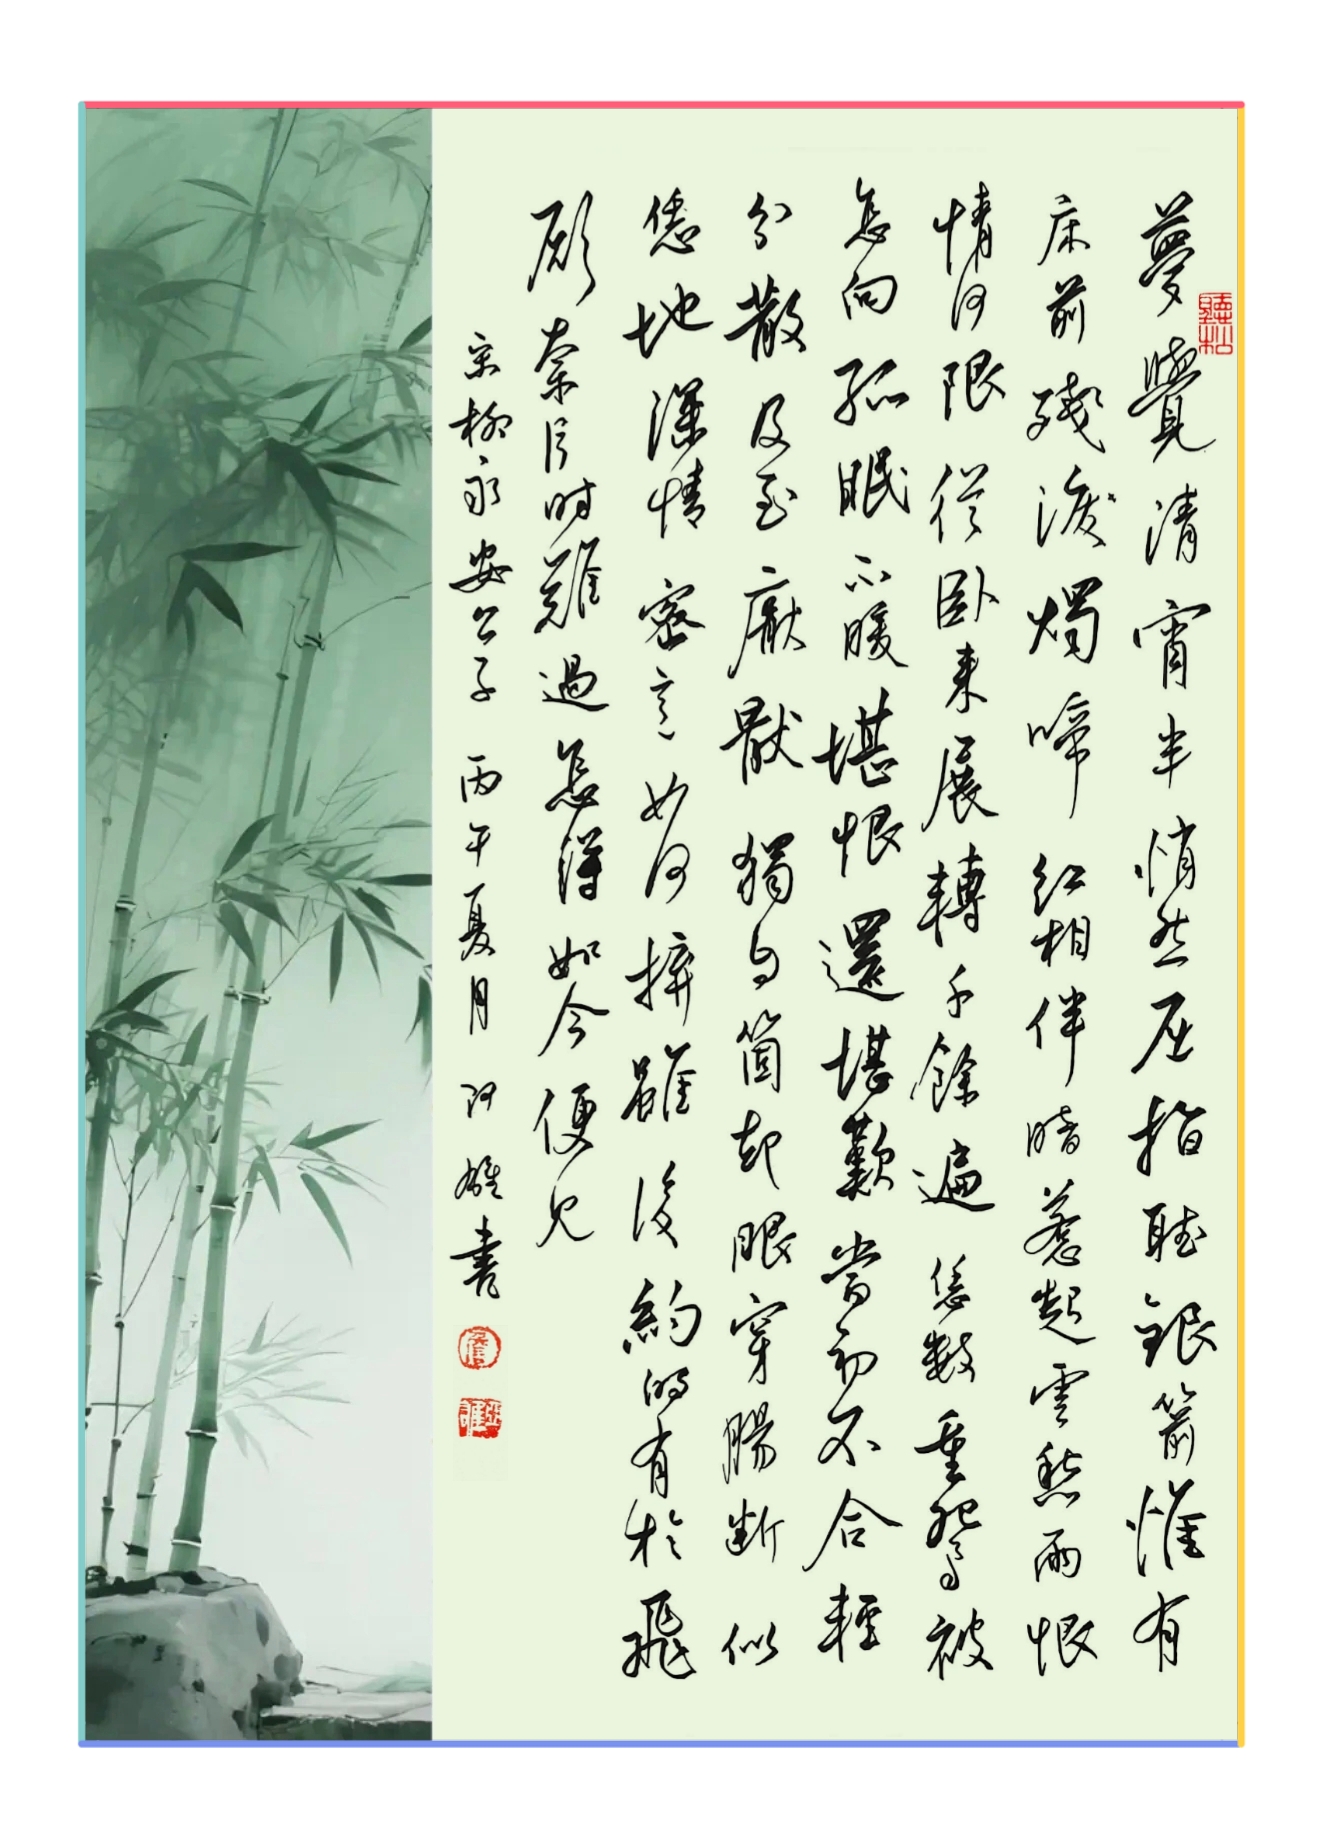 夢覺清宵半悄然屈指聽銀箭惟有
床前殘淚燭啼紅相伴暗惹起雲愁雨恨
情何限從卧來展轉千餘遍恁數重鴛鴦被
怎向孤眠不暖堪恨還堪歎當初不合輕
分散及至厭厭獨自箇却眼穿腸斷似
恁地深情密意如何拚雖後約的有於飛
願奈片時難過怎得如今便見
宋柳永安公子 丙午夏月 雄書
聽松